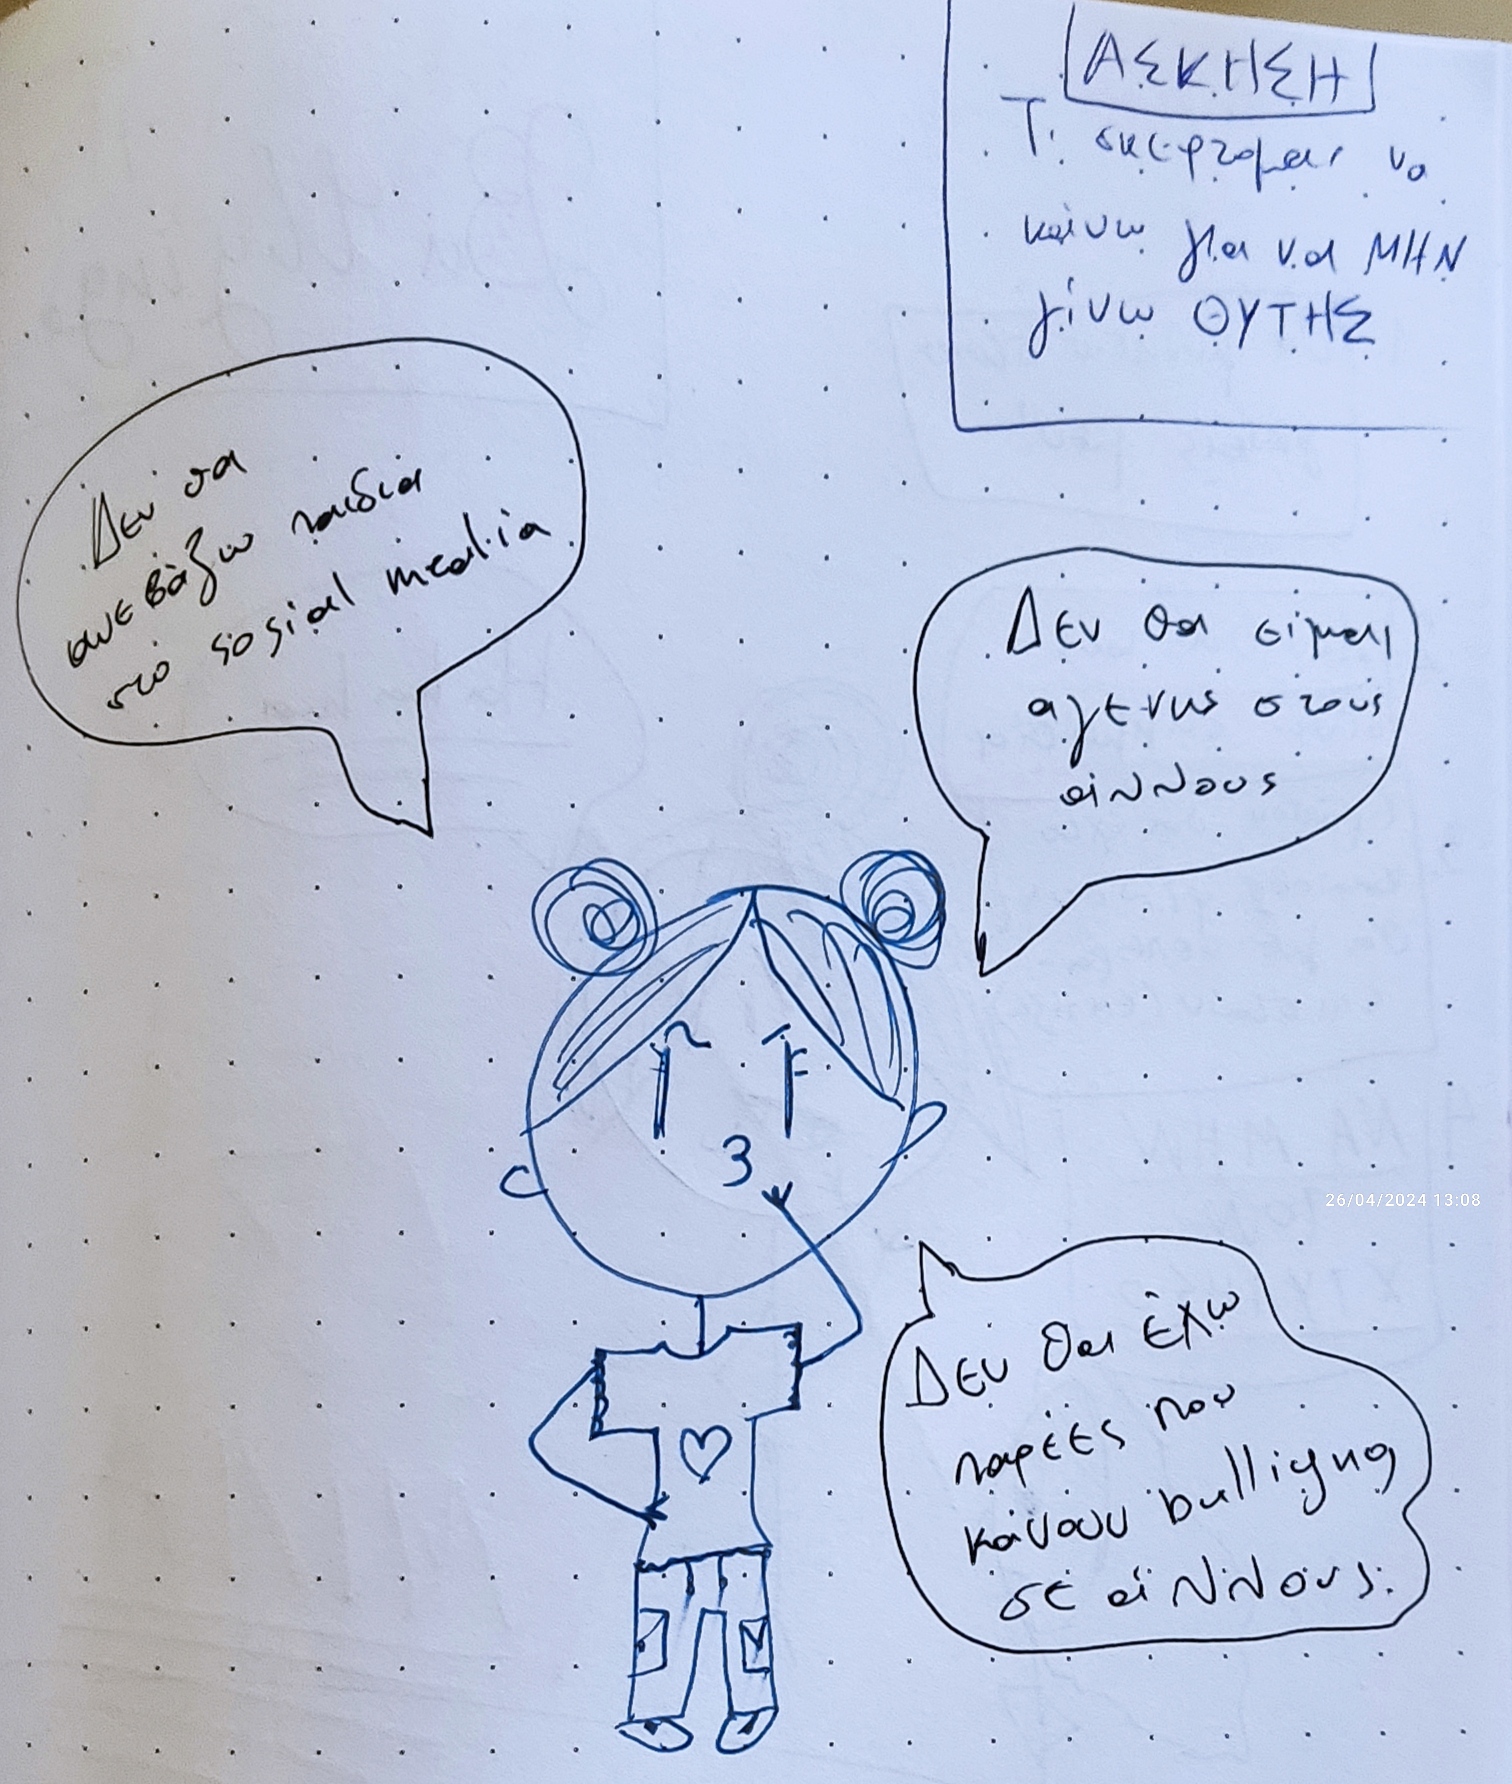 ΑΣΚΗΣΗ
Τι σκεφτομαι να
κάνω για να ΜΗΝ
γίνω ΘΥΤΗΣ
Δεν θα
ανεβάζω παιδια
στο sosial media
Δεν θα είμαι
αγενης στους
άλλους
26/04/2024 13:08
Δεν θα έχω
παρέες που
κάνουν bulligng
σε άλλους.